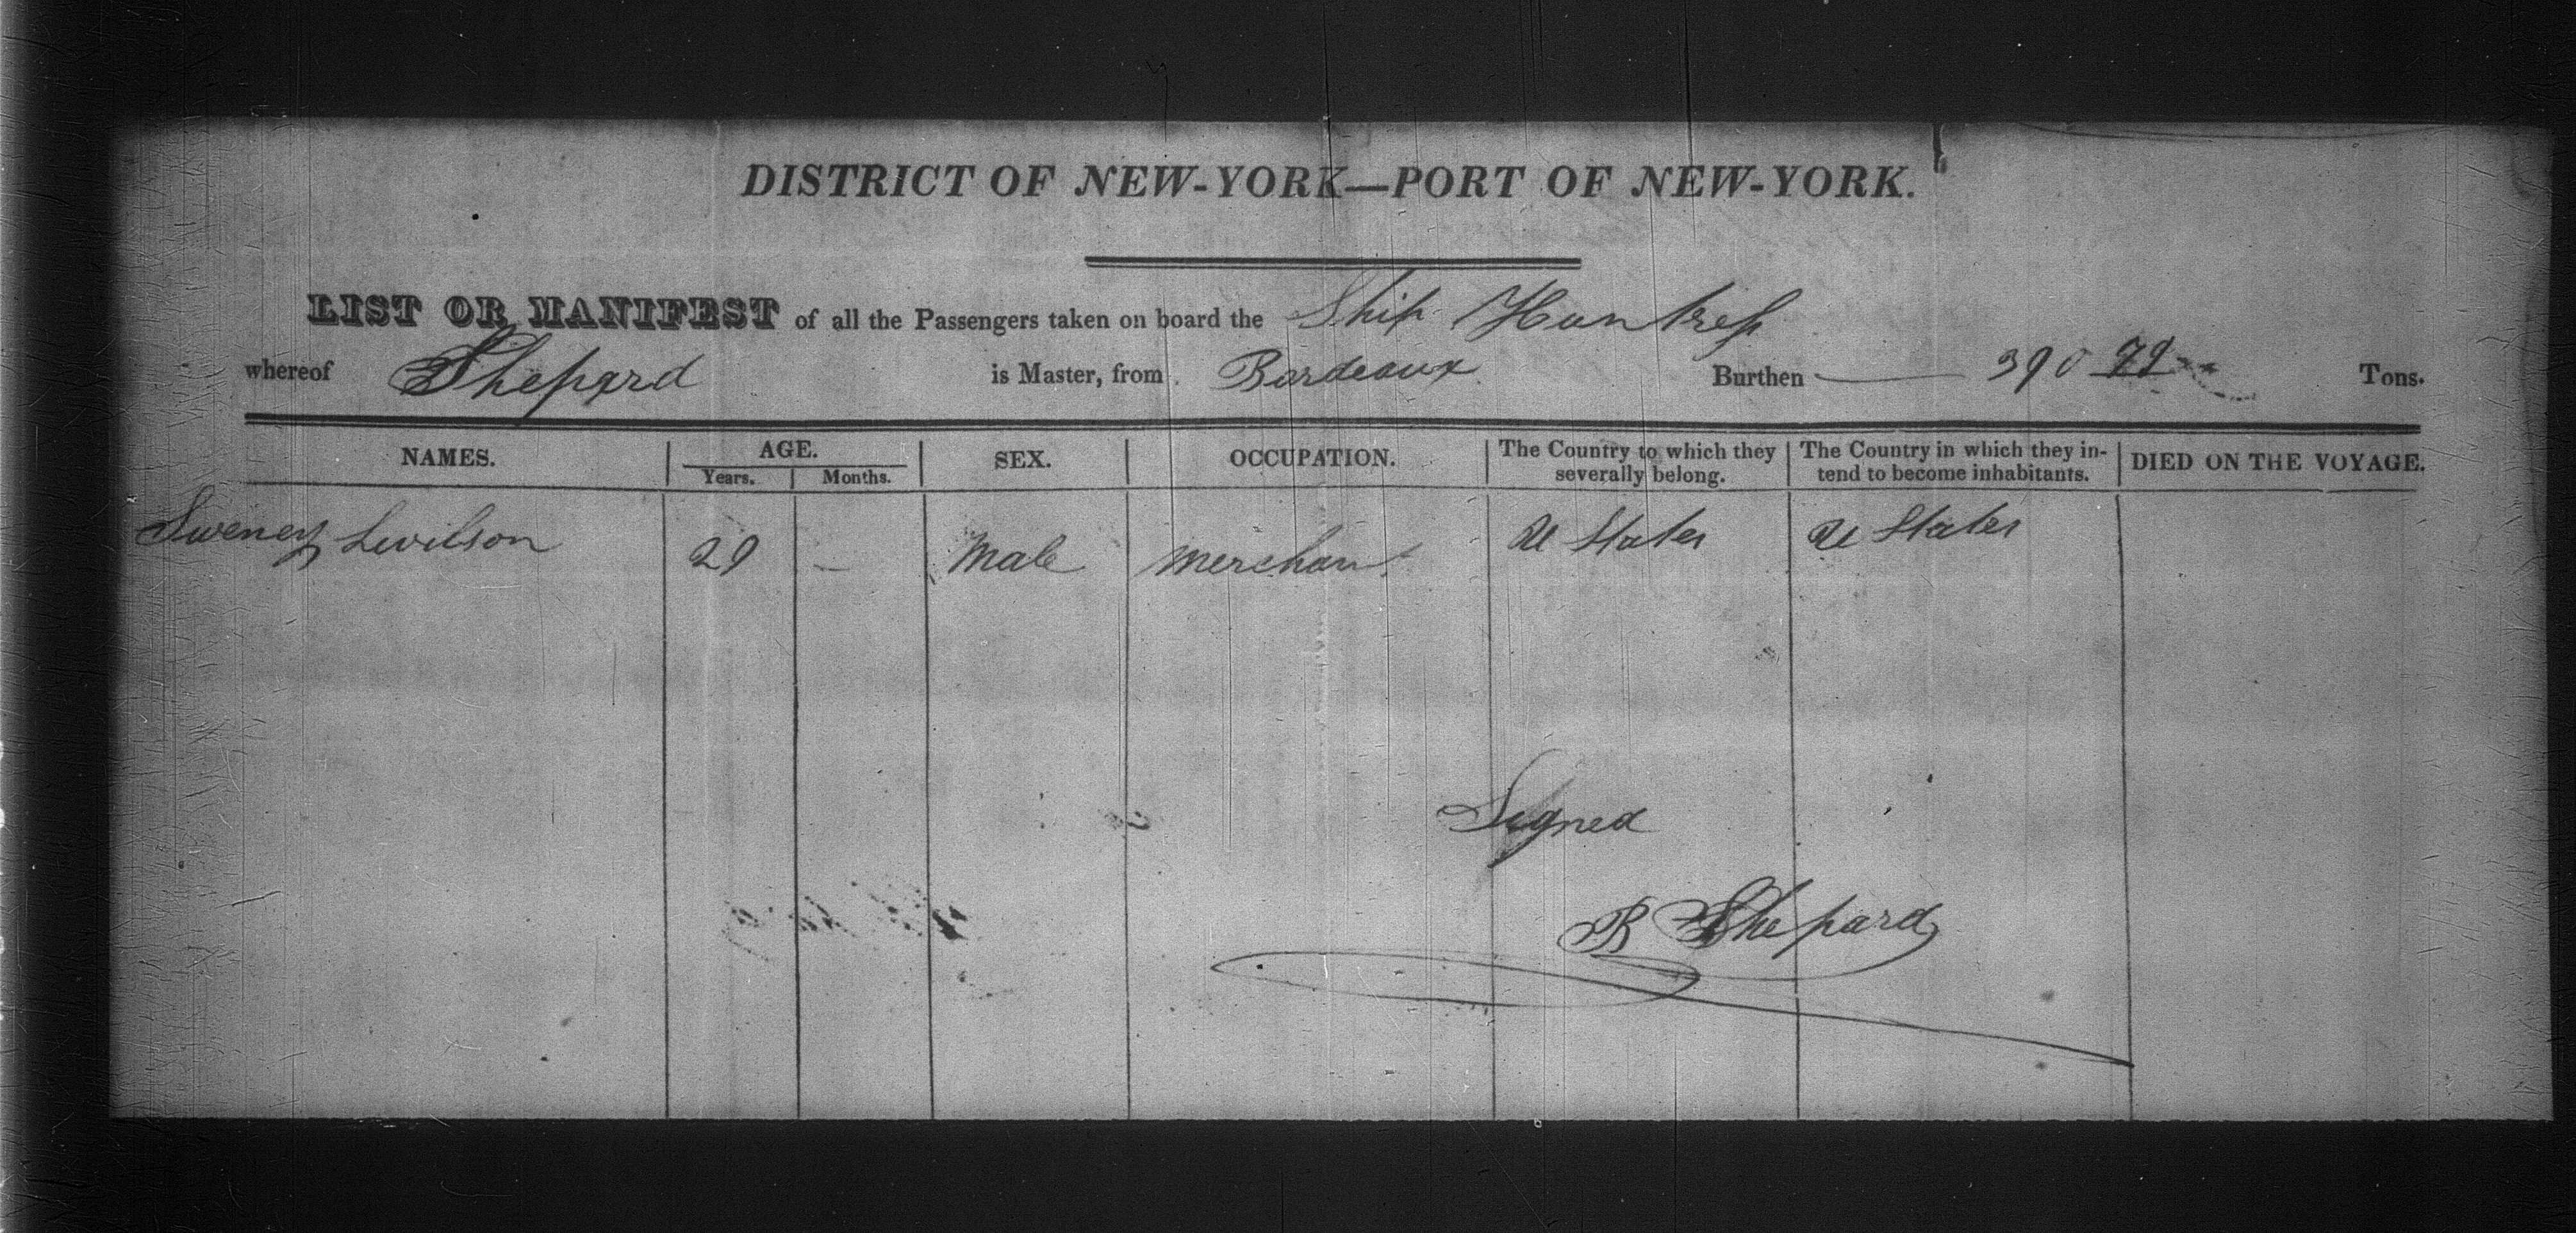 DISTRICT OF NEW-YORK—PORT OF NEW-YORK.
LIST OR MANIFEST of all the Passengers taken on board the Ship Huntress
whereof Shepard is Master, from Bordeaux Burthen — 390 Tons.
NAMES. AGE. SEX. OCCUPATION. The Country to which they severally belong. The Country in which they in-tend to become inhabitants. DIED ON THE VOYAGE.
Years. Months.
Sweney 29 — Male Merchant U States U States
Signed
B Shepard